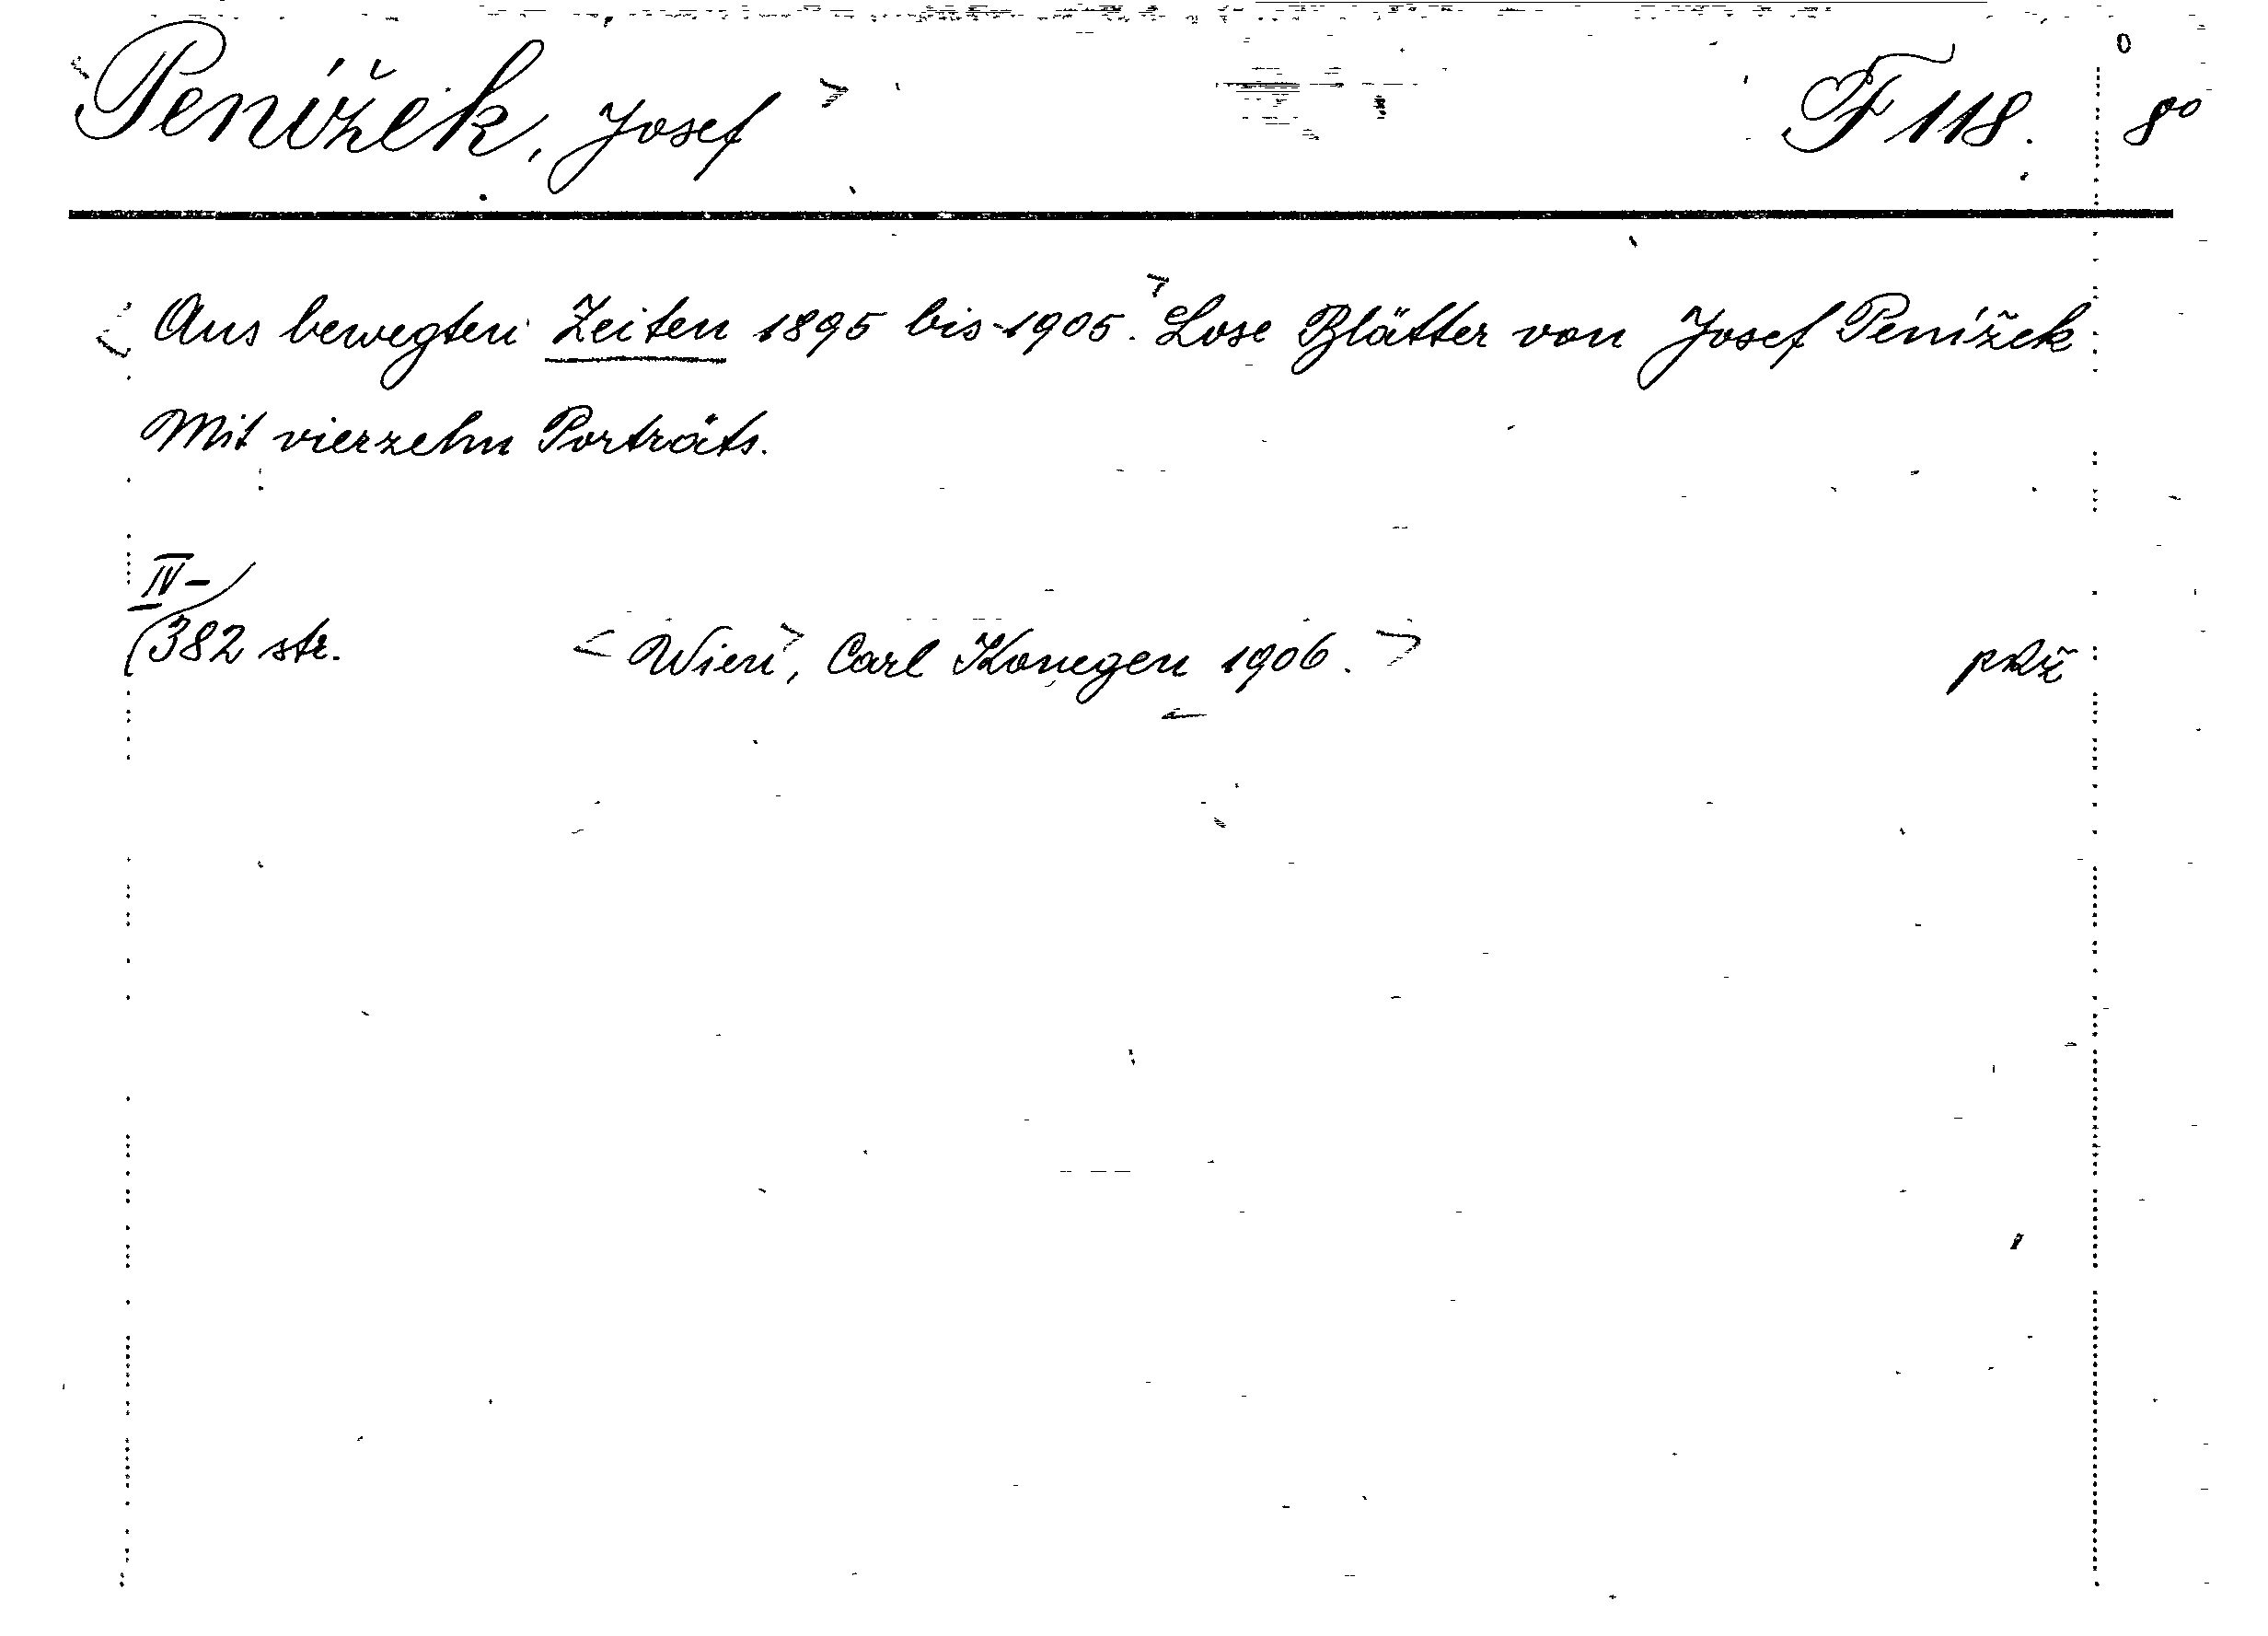 Penížek, Josef F 118. 8º
Aus bewegten Zeiten 1895 bis 1905. Lose Blätter von Josef Penížek
Mit vierzehn Porträts.
IV-
382 str. Wien, Carl Konegen 1906.